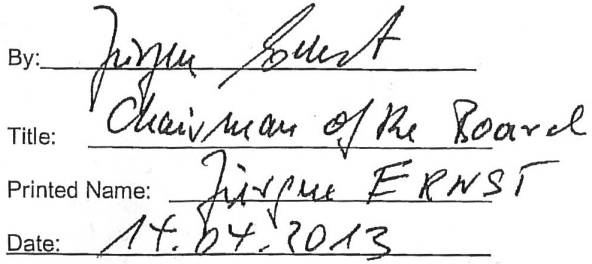 By: Jürgen Ernst
Title: Chairman of the Board
Printed Name: Jürgen ERNST
Date: 14.04.2013